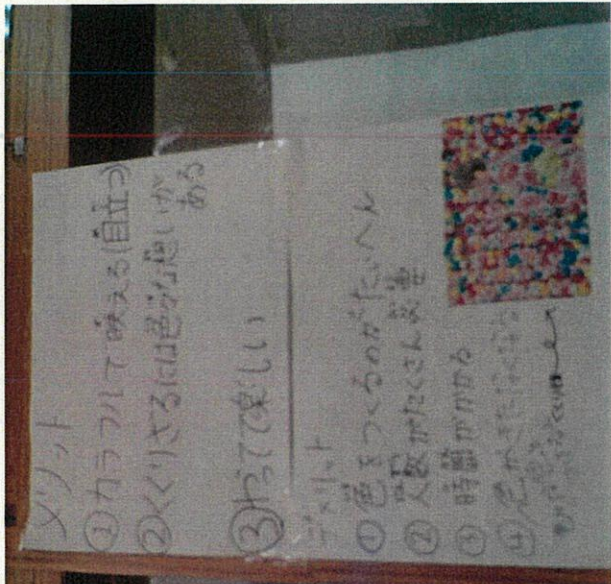 メリット
①カラフルで映える(目立つ)
②くくりざるには色々な違いが
ある
③やってて楽しい
デメリット
①色をつくるのがたいへん
②人数がたくさん必要
③時間がかかる